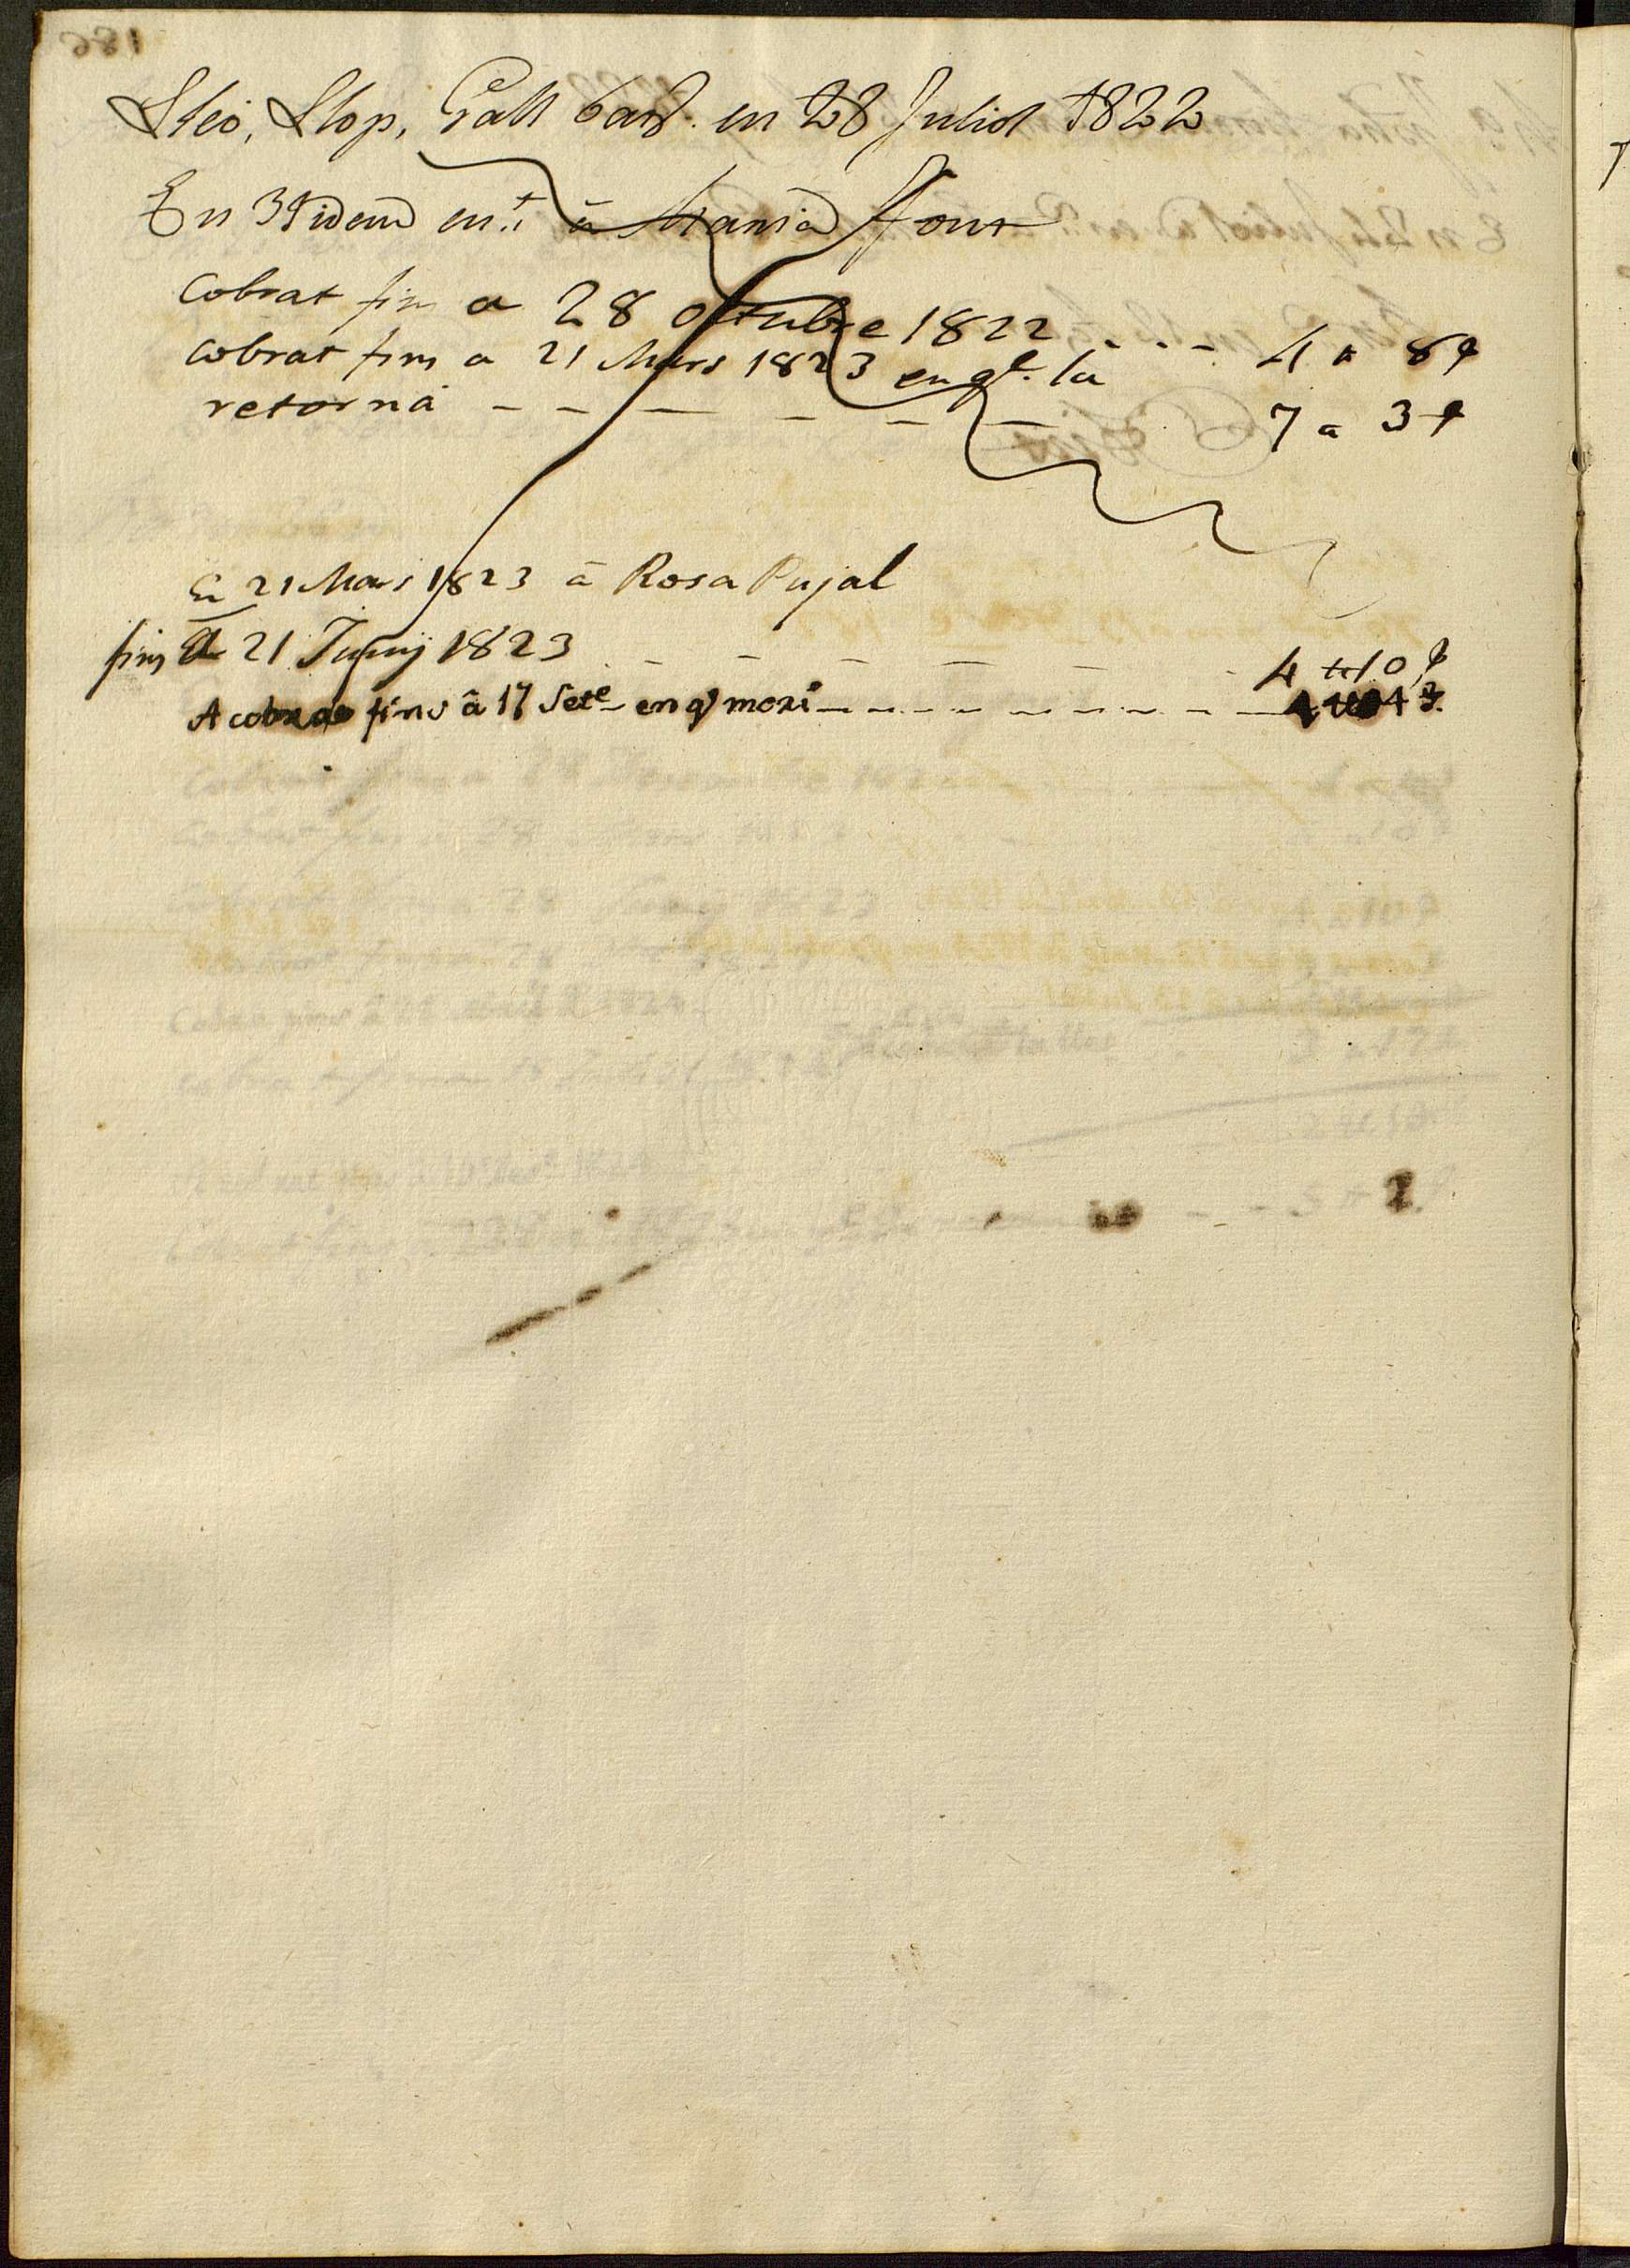 Lleó, Llop, Gall bast. en 28 Juliol 1822
En 31 idem en.t à Maria Font
Cobrat fins a 28 octubre 1822 - - - 4 ₶ 8 ꝭ
Cobrat fins a 21 Mars 1823 en ql. la
retorná - - - - - - 7 ₶ 3 ꝭ
En 21 Mars 1823 â Rosa Pujal
fins a 21 Juny 1823 - - - - - - 4 ₶ 10 ꝭ
A cobrat fins â 17 Sete en q mori - - - - - - - - -